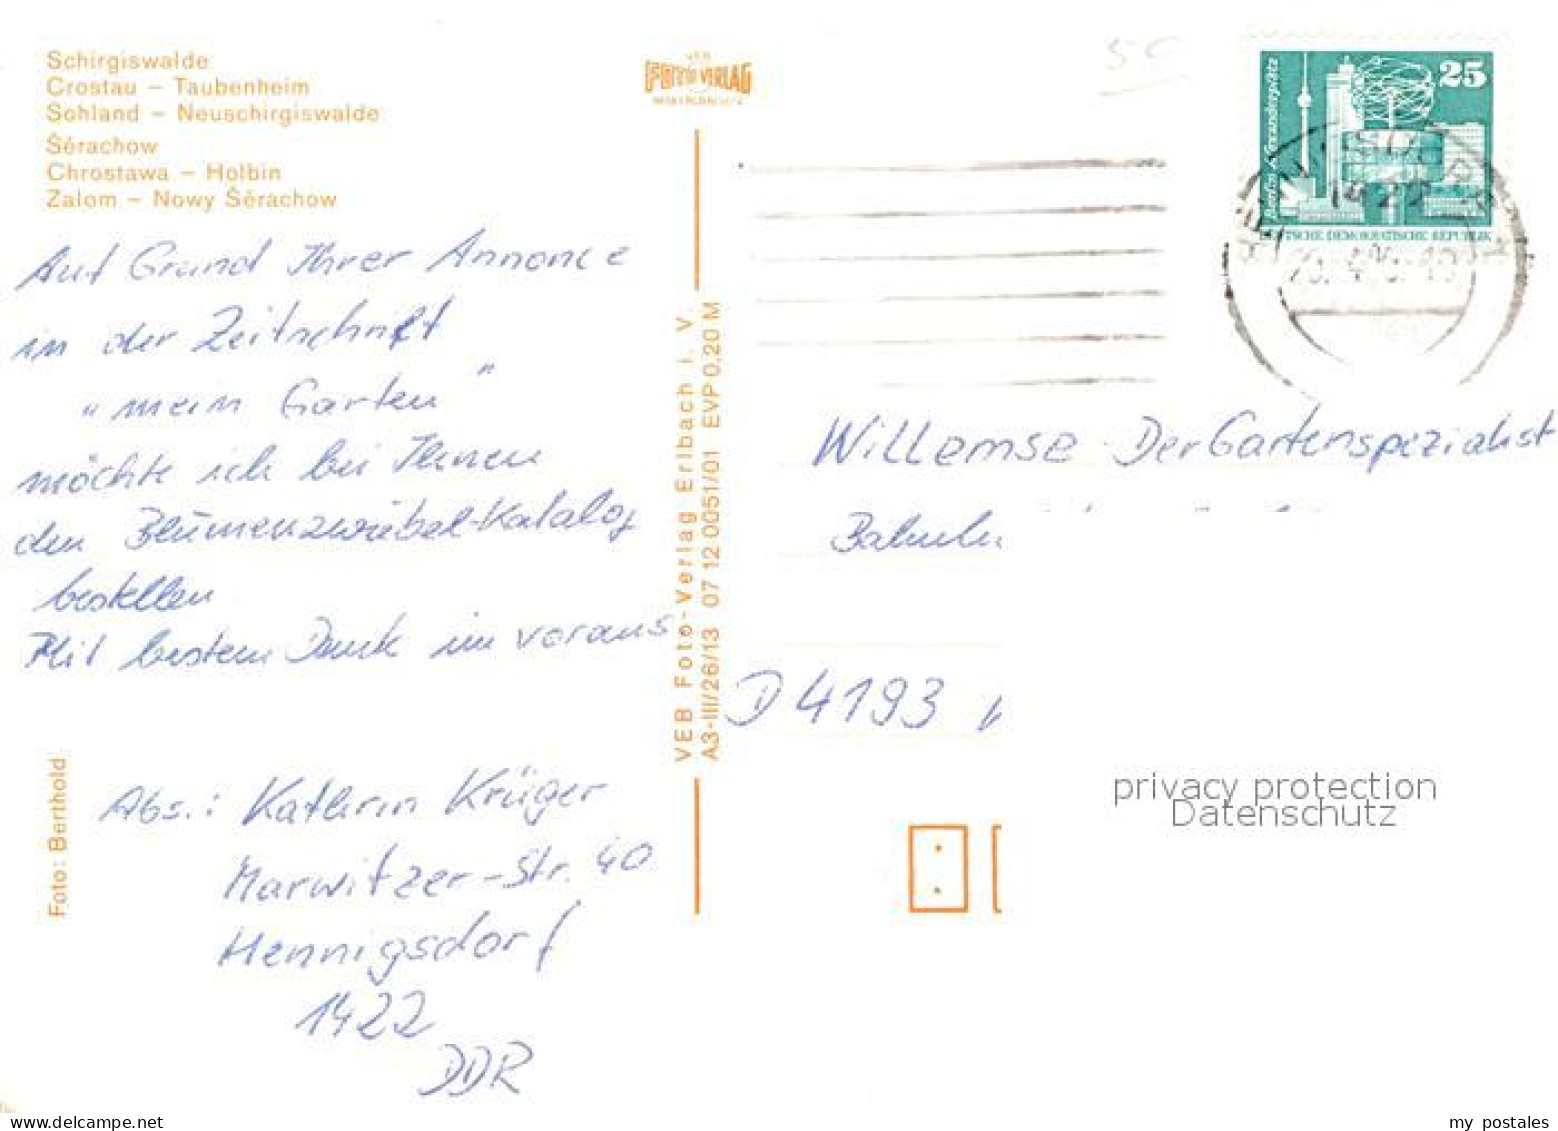 Schirgiswalde
Crostau – Taubenheim
Sohland – Neuschirgiswalde
Šěrachow
Chrostawa – Holbin
Zalom – Nowy Šěrachow
Auf Grund Ihrer Annonce
in der Zeitschrift
„mein Garten"
möchte ich bei Ihnen
den Blumenzwiebel-Katalog
bestellen
Mit bestem Dank im voraus
Abs.: Kathrin Krüger
Marwitzer-Str. 40
Hennigsdorf
1422
DDR
Foto: Berthold
VEB
FOTO VERLAG
VEB Foto-Verlag Erlbach i. V.
A3-III/26/13 07 12 0051/01 EVP 0,20 M
25
Berlin, Alexanderplatz
DEUTSCHE DEMOKRATISCHE REPUBLIK
HENNIGSDORF
1422
Willemse - Der Gartenspezialist
D 4193
privacy protection
Datenschutz
my postales